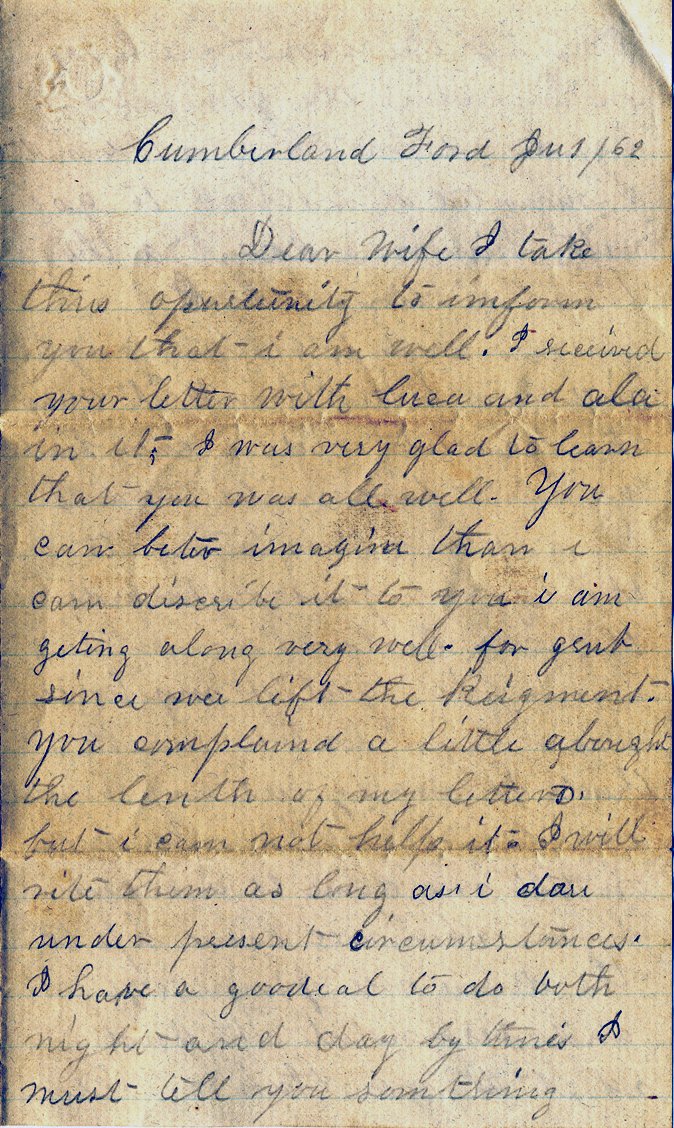 Cumberland Ford Jun 1/62
Dear Wife I take
this opurtunity to imform
you that i am well. I received
your letter with luca and ala
in it, I was very glad to learn
that you was all well. You
can beter imagin than i
cam discribe it to you i am
geting along very well. for
since wee lift the Reigment.
You complaind a little abought
the lenth of my letters.
but i cam not help it. I will
rite them as long as i dare
under present circumstances.
I have a goodeal to do both
night and day by times I
must tell you somthing